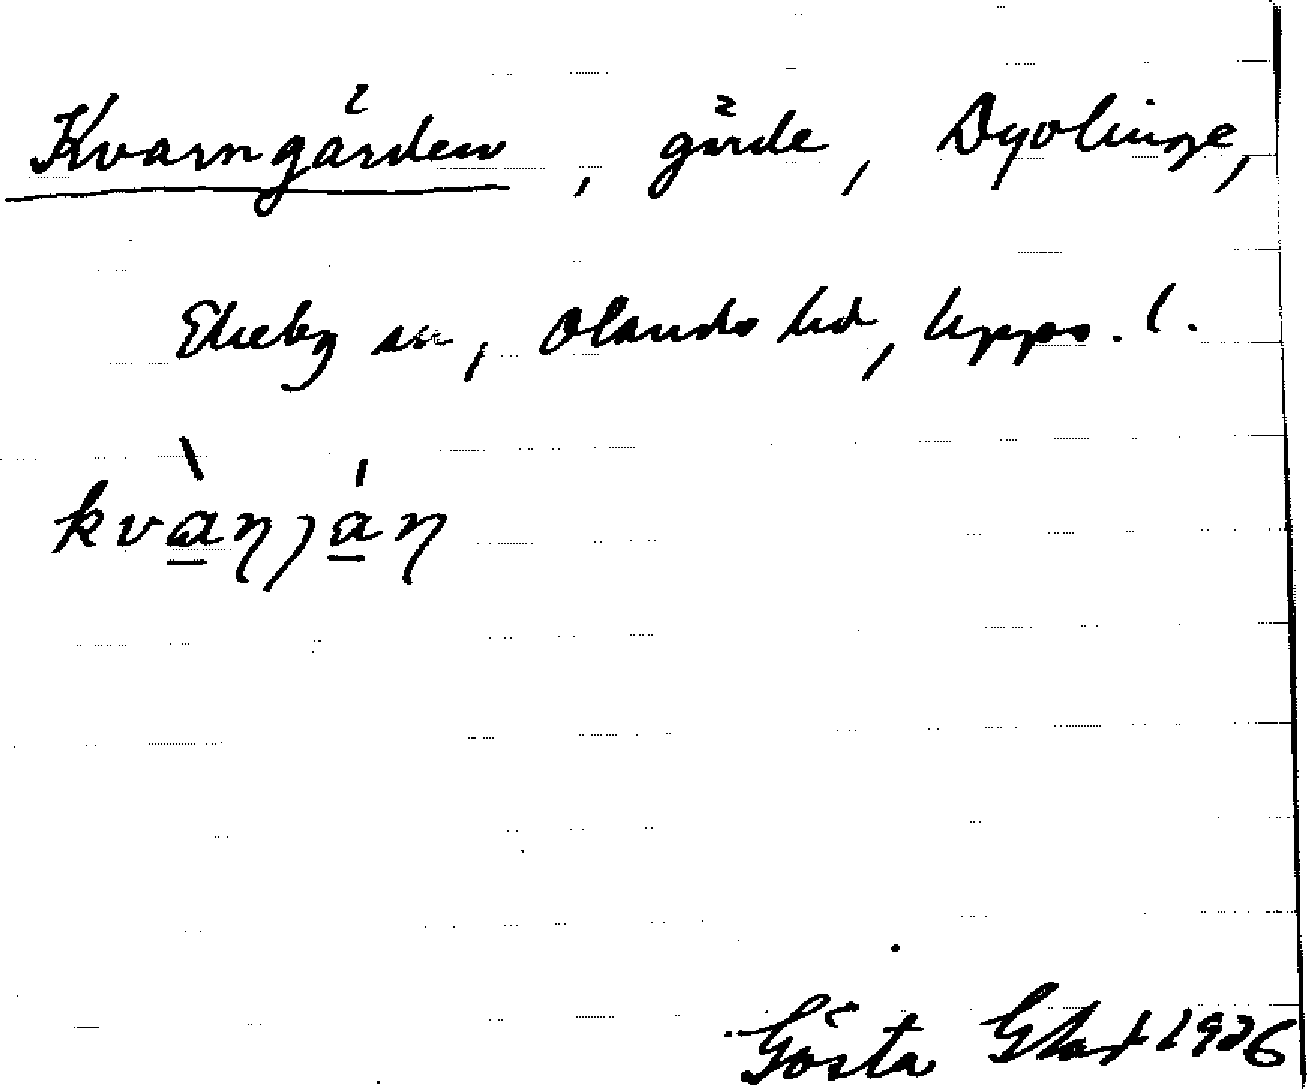 Kvarngärden, gärde, Dyvlinge,
Ekeby sn, Olands hd, Upps. l.
kvàṉjáṉ
Gösta Ehrl 1926